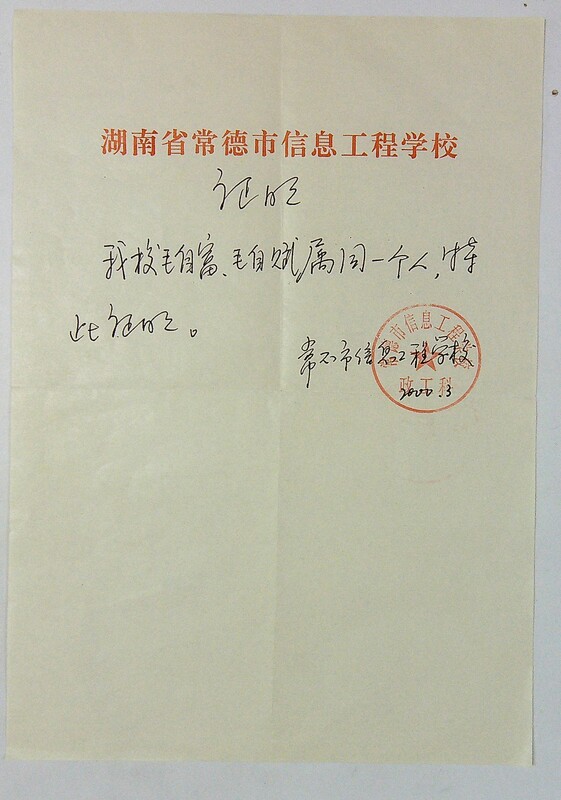 湖南省常德市信息工程学校
证明
我校毛自富、毛自赋属同一个人,特
此证明。
常德市信息工程学校
常德市信息工程学校
政工科
2000.3